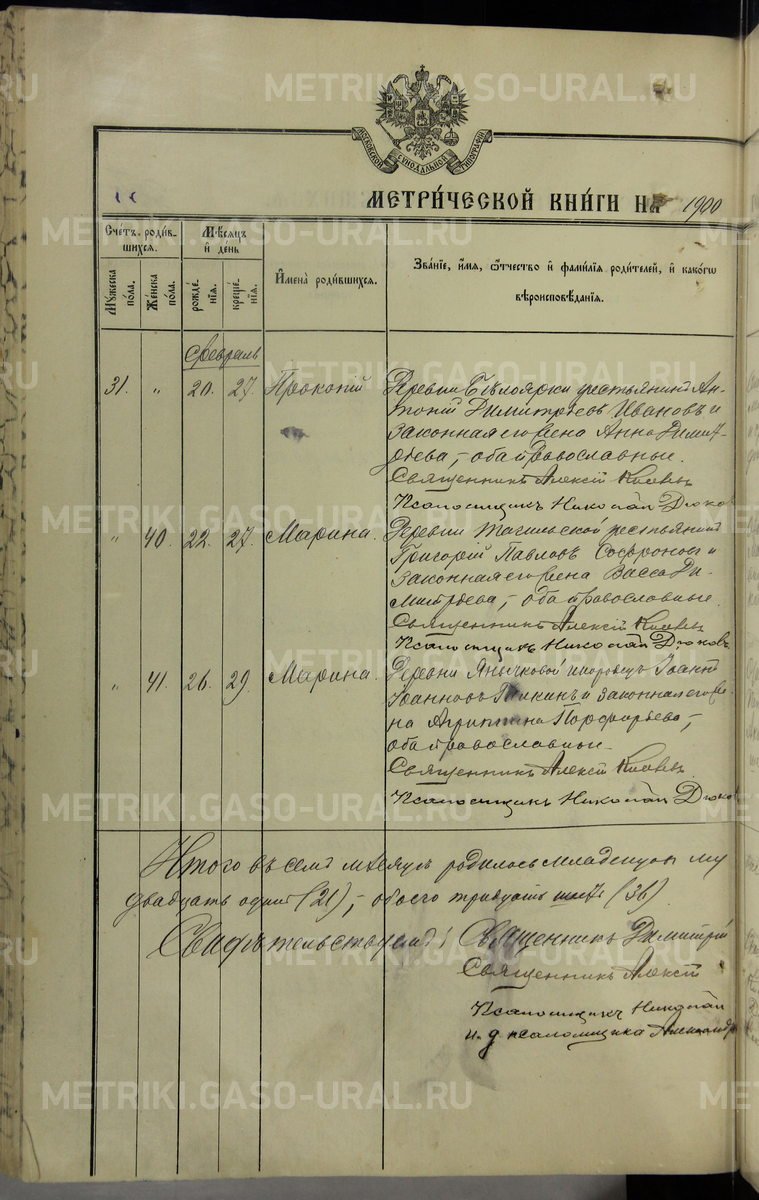 МОСКОВСКОЙ СѴНОДАЛЬНОЙ ТИПОГРАФІИ
МЕТРИ́ЧЕСКОЙ КНИ́ГИ НА 1900
Сче́тъ роди́в-
шихся.
Мꙋ́жеска
по́ла.
Же́нска
по́ла.
Мѣ́сяцъ
и҆ де́нь
рожде́-
нїя.
креще́-
нїя.
И҆мена̀ роди́вшихся.
Зва́нїе, и҆́мя, ѻ҆́тчество и҆ фами́лїя роди́телей, и҆ како́гѡ
вѣроисповѣ́данїя.
Февраль
31. " 20. 27. Прокопій
Деревни Бѣлоярки крестьянинъ Ан-
тоній Димитріевъ Ивановъ и
законная его жена Анна Димит-
ріева, - оба православные.
Священникъ Алексій
Псаломщикъ Николай Дюков
" 40. 22. 27. Марина.
Деревни Тагильской крестьянинъ
Григорій Павловъ Софроновъ и
законная его жена Васса Ди-
митріева, - оба православные
Священникъ Алексій
Псаломщикъ Николай Дюковъ
" 41. 26. 29. Марина.
Деревни Янычковой инородецъ Іоаннъ
Іоанновъ и законная его же-
на Агриппина Порфирьева, -
оба православные
Священникъ Алексій
Псаломщикъ Николай Дюков
Итого въ семъ мѣсяцѣ родилось младенцовъ му
двадцать одинъ (21), - обоего тридцать шесть (36)
Свидѣтельствуемъ: Священникъ Димитрій
Священникъ Алексій
Псаломщикъ Николай
и. д. псаломщика Александр
METRIKI.GASO-URAL.RU